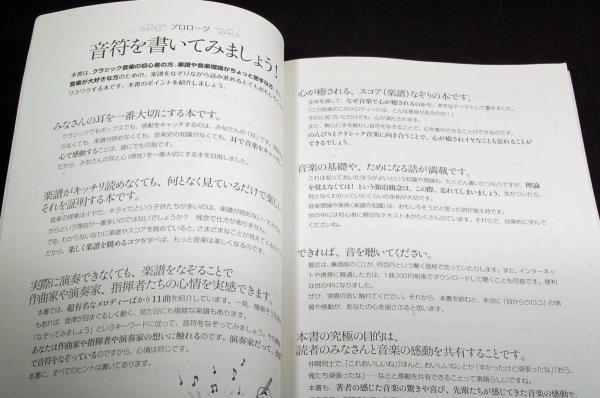 プロローグ
音符を書いてみましょう!
本書は、クラシック音楽の初心者の方、楽譜や音楽理論がちょっと苦手な方、
音楽が大好きな方のための、楽譜をなぞりながら読み進める
ワクワクする本です。本書のポイントを紹介しましょう。
みなさんの耳を一番大切にする本です。
クラシックでもポップスでも、感動をキャッチするのは、みなさんの「耳」です。
らなくても、楽譜が読めなくても、音楽史の知識がなくても、耳で音楽を
心で感動することは、誰にでも可能です。
だから、みなさんの耳と心(感性)を一番大切にする本を目指しました。
楽譜がキッチリ読めなくても、何となく見ているだけで楽し
それを証明する本です。
音楽の授業はイヤだ、キライだという子供たちが多いのは、楽譜が読めない・わ
からという理由が一番多いのではないでしょうか? 残念で仕方がありません。
でも、わからないなりに楽譜やスコアを眺めていると、さまざまなことが見えて
だから、楽しく楽譜を眺めるコツを学べば、もっと音楽は楽しくなるのです。
実際に演奏できなくても、楽譜をなぞることで
作曲家や演奏家、指揮者たちの心情を実感できます。
本書では、超有名なメロディーばかり11曲を紹介しています。一見、簡単そう
もあれば、旋律が目まぐるしく動く、見た目にも複雑な楽譜もあります。
「なぞってみましょう」というキーワードに従って、音符をなぞってみましょう。
あなたは作曲家や指揮者や演奏家の想いに触れるのです。演奏家だって、
で音符をなぞっているのですから、心情は同じです。
本書に、すべてのヒントは書いてあります。
心が癒される、スコア(楽譜)なぞりの本です。
全体を通して、なぜ音楽で心が癒されるのかを、大きなテーマとして書きました。
「この音楽のこのメロディーには、こんな意味があるのか!」
それに気づいただけでも、心が満たされます。
また、無心に手を動かし音符をなぞることで、心を集中させることができるのです。
のんびりとクラシック音楽に向き合うことで、心が癒されイヤなことも忘れることが
できるでしょう。
音楽の基礎や、ためになる話が満載です。
これは知っておいたほうがよいという知識や理論も、たくさん書いたつもりですが、理論
を覚えなくては!という強迫観念は、この際、忘れてしまいましょう。気がついたら、
何となくわかっていたくらいの余裕が大切です。
音楽理論や楽典(楽譜の知識)は、おもしろそうだと思った時が覚え時です。
世の中には初心者に親切なテキスト本がたくさん出ています。それらで、効果的に学んで
くださいね。
できれば、音を聴いてください。
最近は、廉価版のCDが、何百円という驚く価格で売っていたりします。また、インターネッ
トや携帯に精通した方は、1曲200円前後でダウンロードして聴くことも可能です。便利
な世の中になりました。
ぜひ、実際の音に触れてください。それから、本書を読むと、本当に「目からウロコ」の情
報や感動が、あなたの心を揺さぶると思います。
本書の究極の目的は、
読者のみなさんと音楽の感動を共有することです。
仲間同士で、「これおいしいね」「ほんと、おいしいね」とか「辛かったけど頑張ったな」「おう、
俺たち頑張ったな」……などと感動を共有できることって素晴らしいですね。
本書も、著者の感じた音楽の驚きや喜び、先輩たちが感じてきた音楽の感動を、